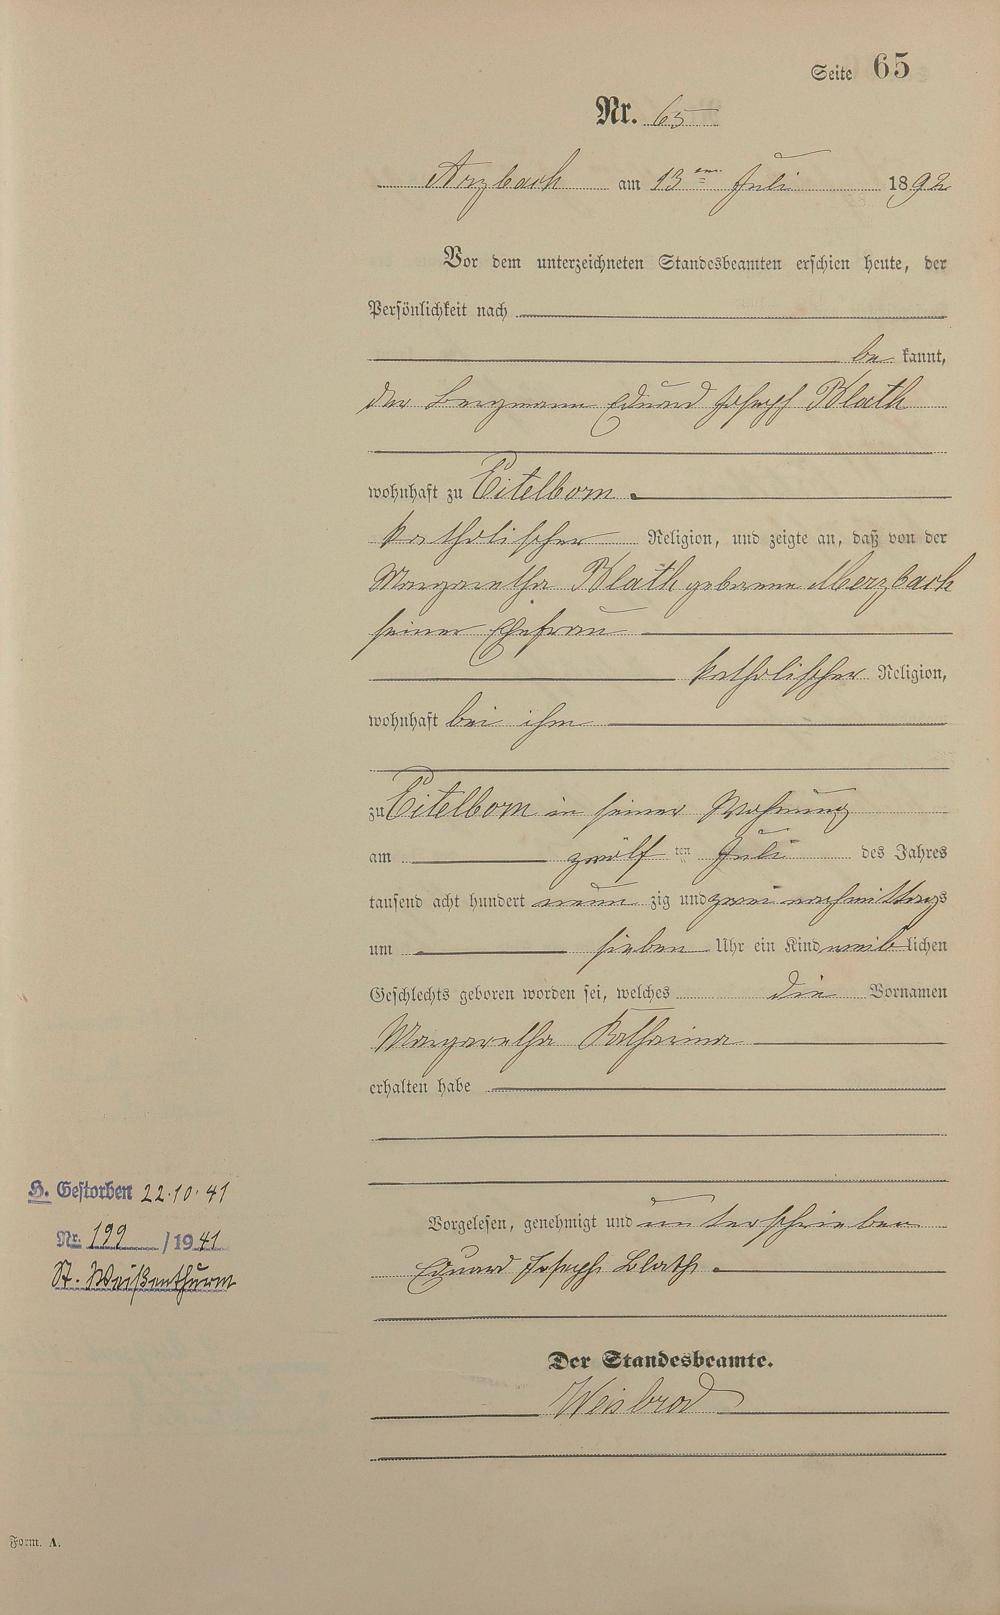 Seite 65
Nr. 65
Arzbach am 13ten Juli 1892
Vor dem unterzeichneten Standesbeamten erschien heute, der
Persönlichkeit nach
be kannt,
der Bergmann Eduard Joseph Blath
wohnhaft zu Eitelborn
katholischer Religion, und zeigte an, daß von der
Margaretha Blath geborene Merzbach
seiner Ehefrau
katholischer Religion,
wohnhaft bei ihm
zu Eitelborn in seiner Wohnung
am zwölf ten Juli des Jahres
tausend acht hundert neun zig und zwei nachmittags
um sieben Uhr ein Kind weib lichen
Geschlechts geboren worden sei, welches die Vornamen
Margaretha Katharina
erhalten habe
H. Gestorben 22.10.41
Nr. 199 / 1941
St. Weißenthurm
Vorgelesen, genehmigt und unterschrieben
Eduard Joseph Blath.
Der Standesbeamte.
Weisbrod
Form. A.